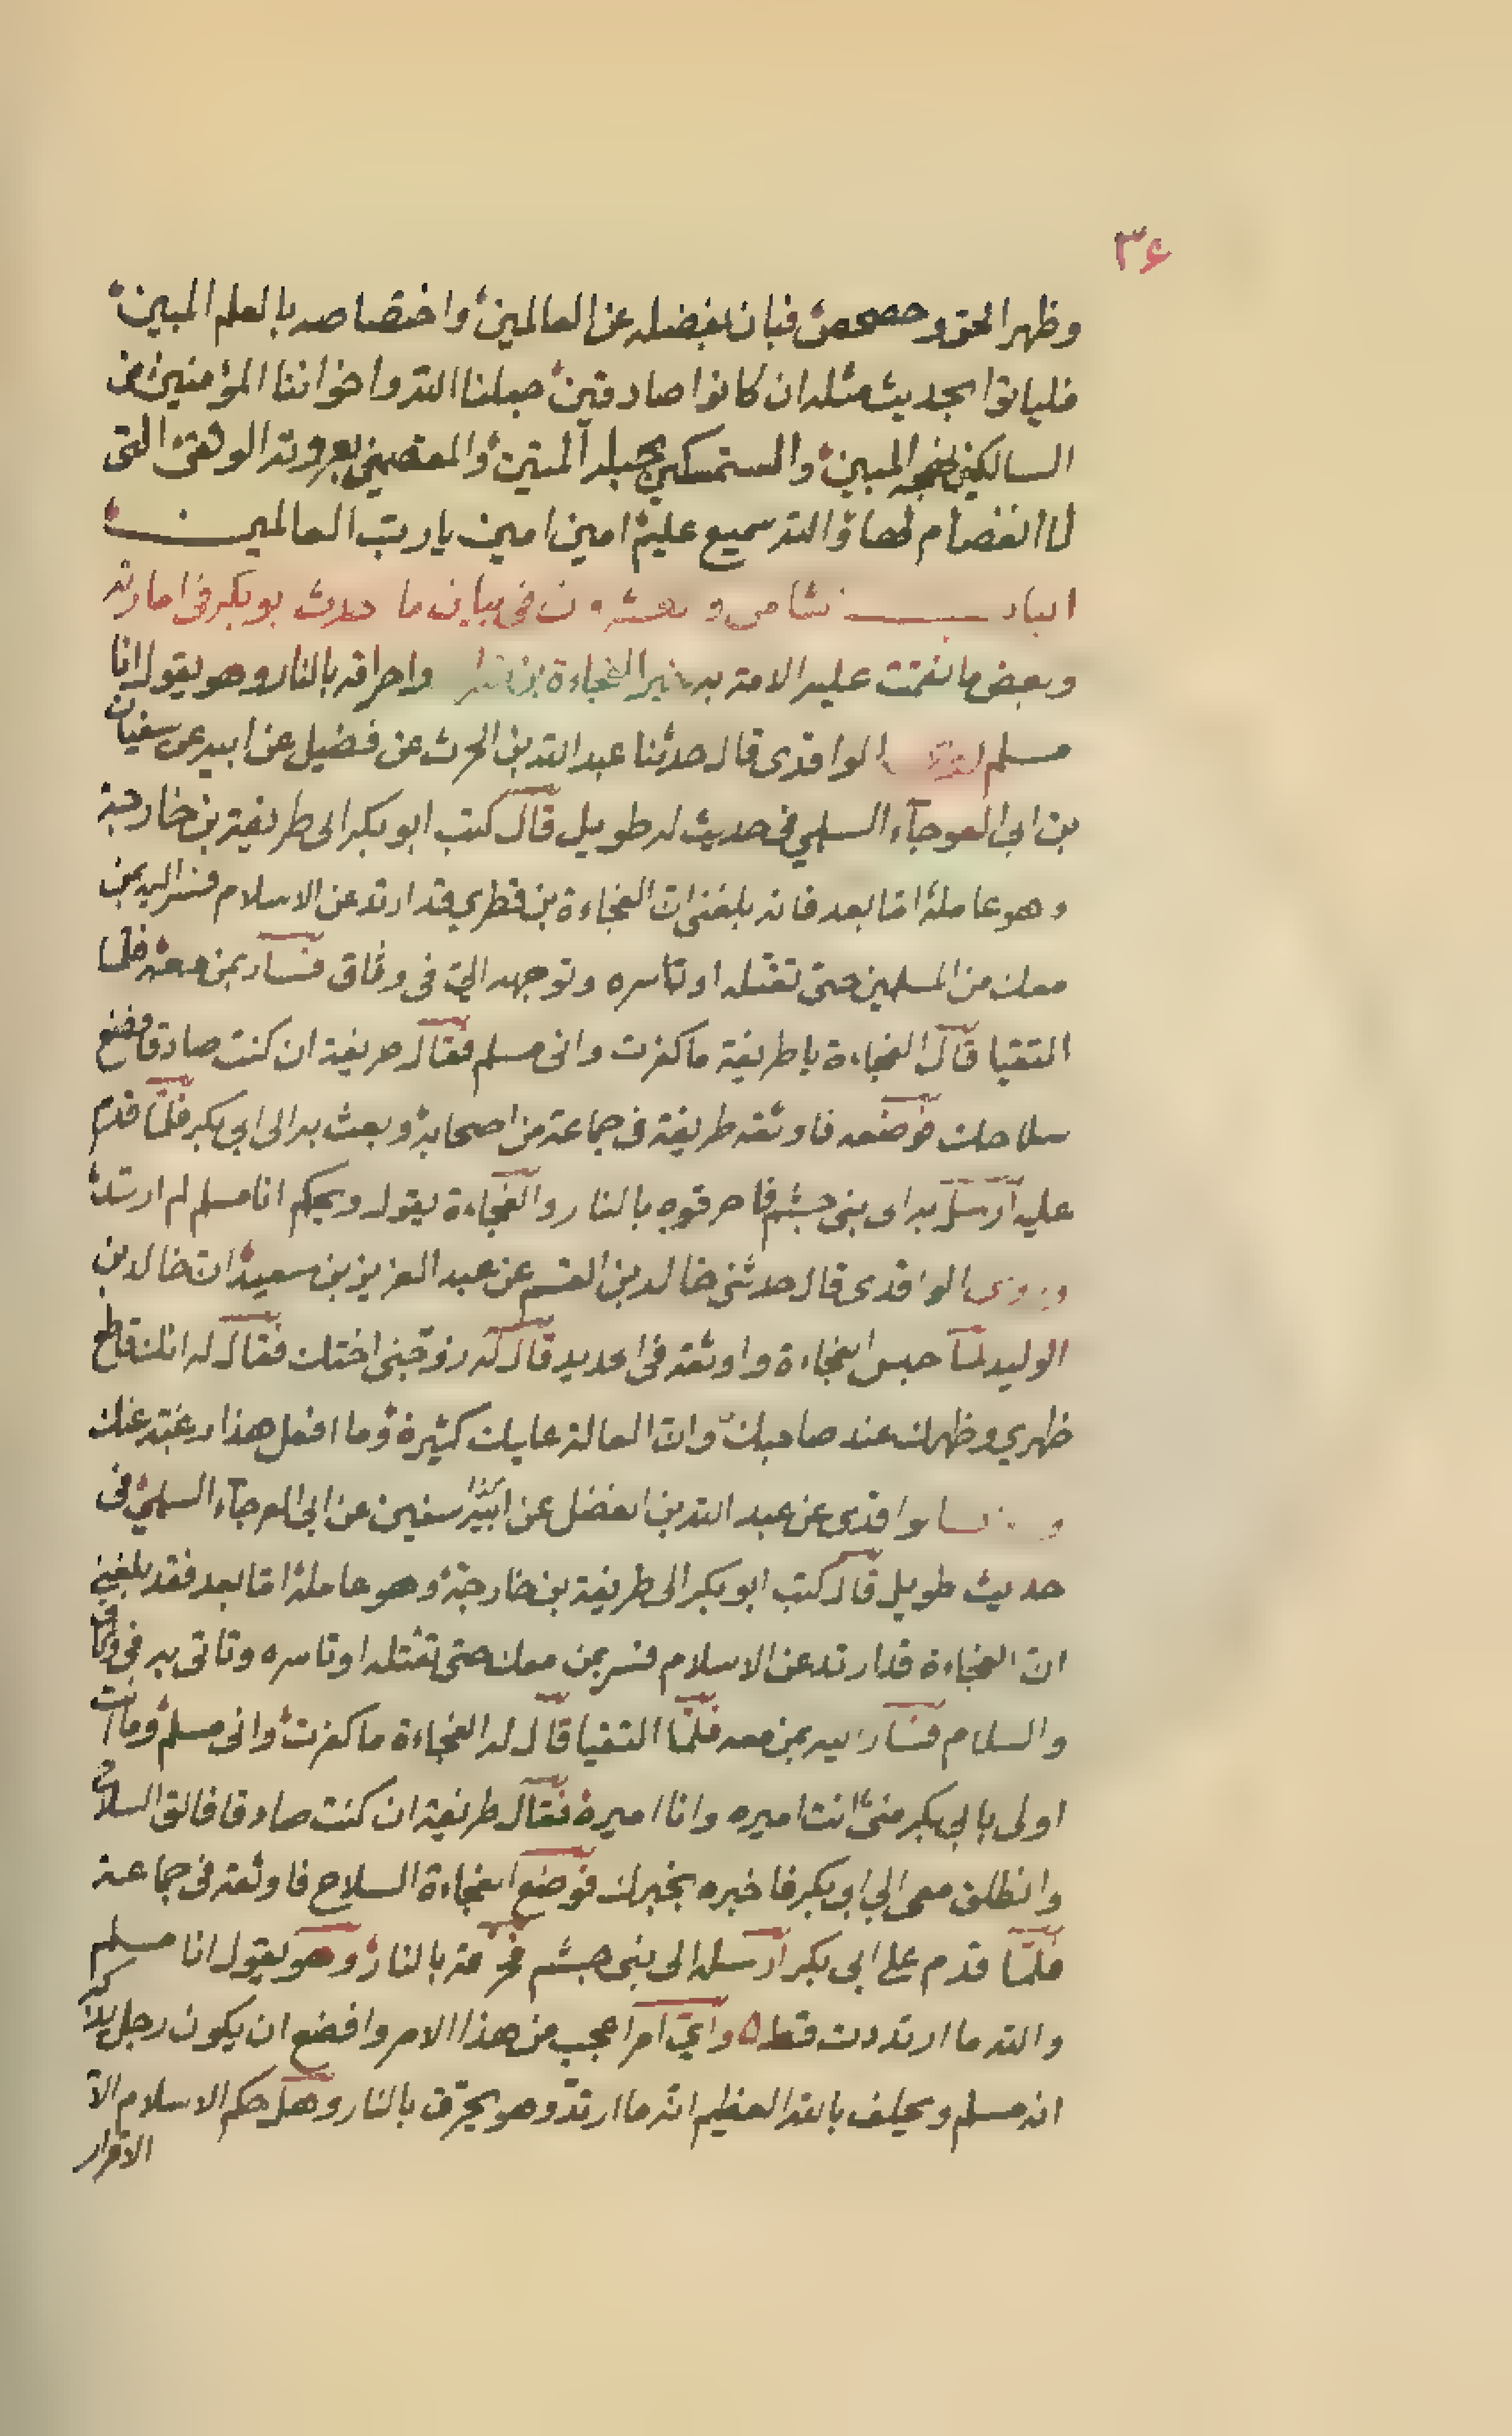 ٣٤
وظهر الحق وحصحص فبان بفضله عن العالمين واختصاصه بالعلم المبين
فلياتوا بحديث مثله ان كانوا صادقين جعلنا الله واخواننا المؤمنين من
السالكين لنهجه المبين والمستمسكين بحبله المتين والمعتصمين بعروته الوثقى التى
لا انفصام لها والله سميع عليم امين امين يا رب العالمين
الباب فى بيان ما حدث بو بكر فى امارته
وبعض ما نقمت عليه الامة به الفجاءة بن واحراقه بالنار وهو يقول انا
مسلم الواقدى قال حدثنا عبد الله بن الحرث عن فضيل عن ابيه عن سفيان
بن ابى العوجآء السلمي فى حديث له طويل قال كتب ابو بكر الى طريفة بن خارجة
وهو عامله اما بعد فانه بلغنى ان الفجاءة بن قطري قد ارتد عن الاسلام فسر اليه بمن
معك من المسلمين حتى تقتله او تاسره وتوجهه الى فى وثاق فسار بمن معه فلما
التقيا قال الفجاءة يا طريفة ما كفرت وانى مسلم فقال طريفة ان كنت صادقا فضع
سلاحك فوضعه فاوثقه طريفة فى جماعة من اصحابه وبعث به الى ابى بكر فلما قدم
عليه ارسل به الى بنى جشم فاحرقوه بالنار والفجاءة يقول ويحكم انا مسلم لم ارتد
وروى الواقدى قال حدثنى خالد بن القسم عن عبد العزيز بن سعيد ان خالد بن
الوليد لما حبس الفجاءة واوثقه فى الحديد قال له زوجنى اختك فقال له انك قاطع
ظهري وظهرك عند صاحبك وان القالة عليك كثيرة وما افعل هذا رغبة عنك
الواقدى عن عبد الله بن الفضل عن ابيه سفين عن ابى العوجآء السلمي فى
حديث طويل قال كتب ابو بكر الى طريفة بن خارجة وهو عامله اما بعد فقد بلغنى
ان الفجاءة قد ارتد عن الاسلام فسر بمن معك حتى تقتله او تاسره وتاتى به فى وثاق
والسلام فسار اليه بمن معه فلما التقيا قال له الفجاءة ما كفرت وانى مسلم وما انت
اولى بابى بكر منى انت اميره وانا اميره فقال طريفة ان كنت صادقا فالق السلاح
وانطلق معى الى ابى بكر فاخبره بخبرك فوضع الفجاءة السلاح فاوثقه فى جماعة
فلما قدم على ابى بكر ارسله الى بنى جشم فحرقه بالنار وهو يقول انا مسلم
والله ما ارتددت قط واي امر اعجب من هذا الامر وافضع ان يكون رجل يذكر
انه مسلم ويحلف بالله العظيم انه ما ارتد وهو يحرق بالنار وهل حكم الاسلام الا
الاقرار